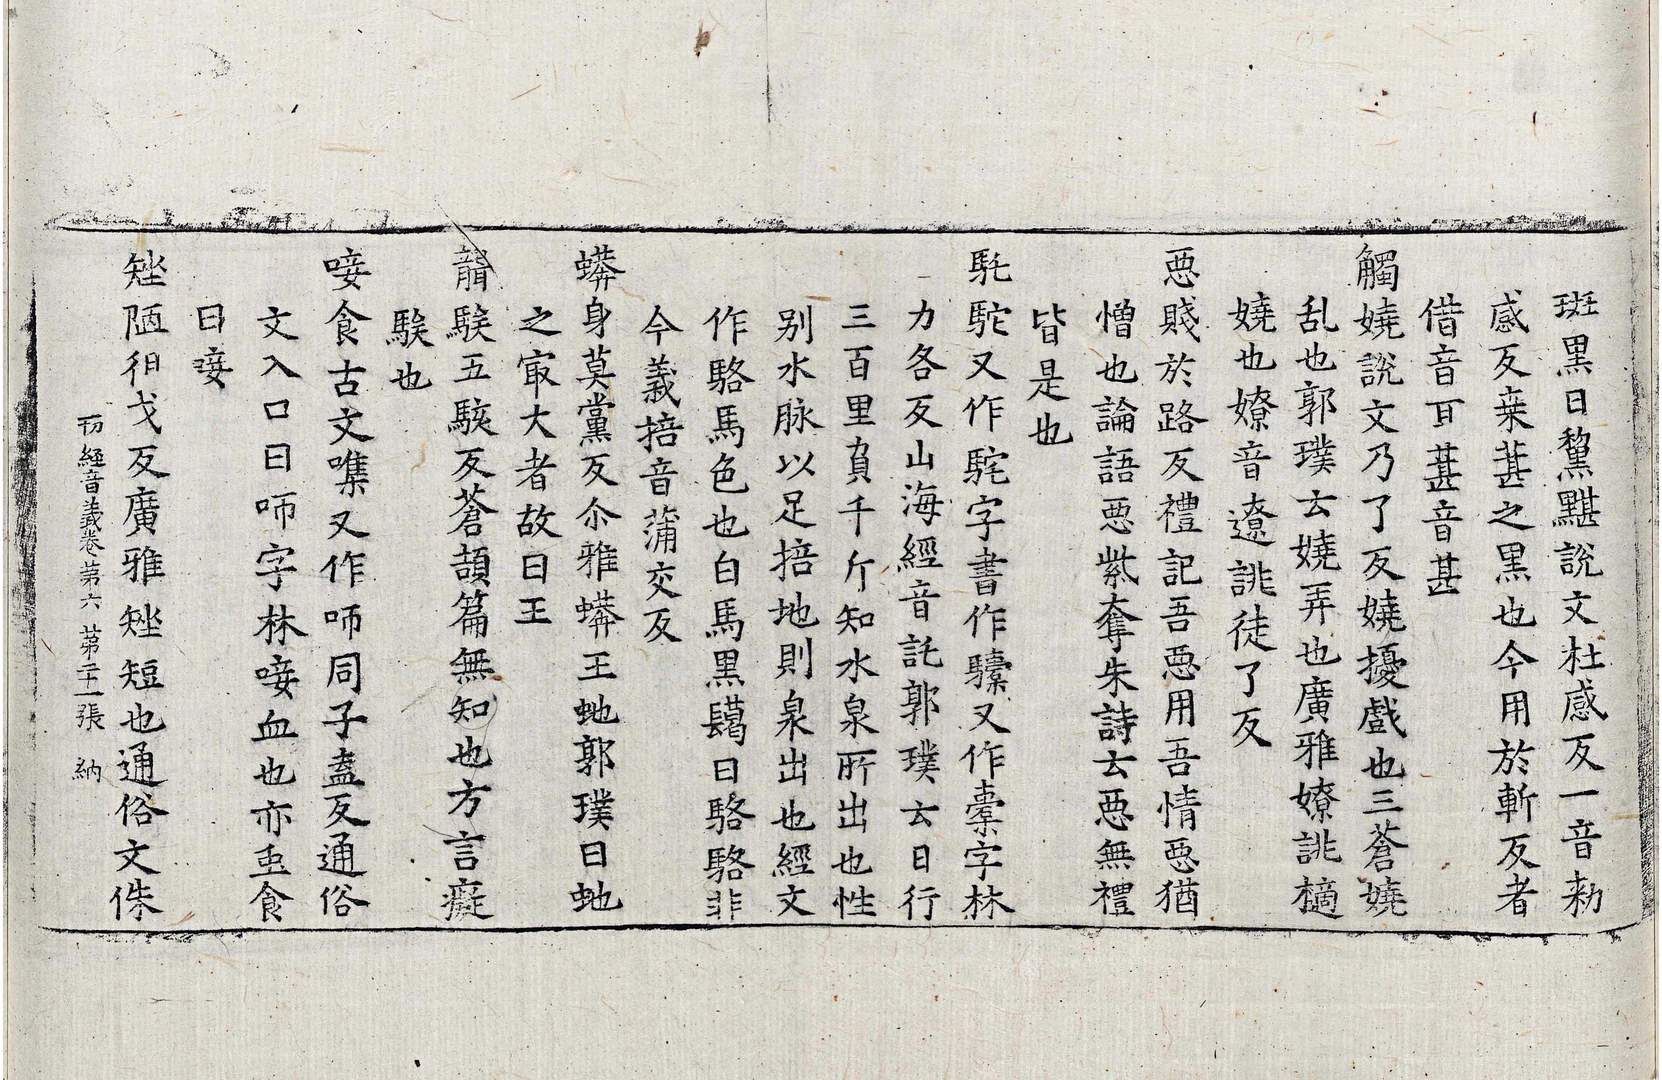 斑黒曰黧黮說文杜感反一音勑
感反桒葚之黒也今用於斬反者
借音耳葚音甚
觸嬈說文乃了反嬈擾戲也三蒼嬈
乱也郭璞云嬈弄也廣雅嫽誂擿
嬈也嫽音遼誂徒了反
惡賤於路反禮記吾惡用吾情惡猶
憎也論語惡紫奪朱詩云惡無禮
皆是也
馲駝又作駞字書作驝又作橐字林
力各反山海經音託郭璞云日行
三百里負千斤知水泉所出也性
別水脉以足掊地則泉出也經文
作駱馬色也白馬黒鬣曰駱駱非
今義掊音蒲交反
蟒身莫黨反尒雅蟒王虵郭璞曰虵
之㝡大者故曰王
聾騃五駭反蒼頡篇無知也方言癡
騃也
唼食古文噍又作咂同子盍反通俗
文入口曰咂字林唼血也亦䖝食
曰唼
矬陋徂戈反廣雅矬短也通俗文侏
一切經音義卷第六 第二十一張 納